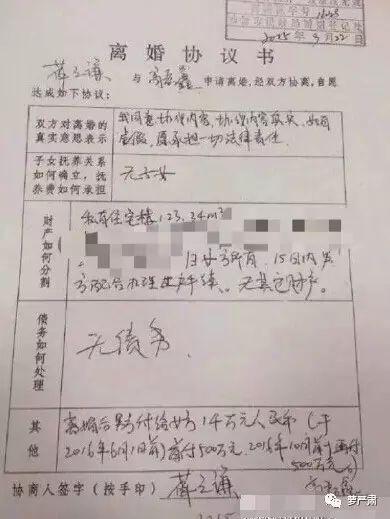 离婚协议书
薛之谦 与 高磊鑫 申请离婚,经双方协商,自愿
达成如下协议:
双方对离婚的
真实意思表示
我同意协议内容,协议内容真实,如有
虚假,愿承担一切法律责任.
子女抚养关系
如何确立,抚
养费如何承担
无子女
财产如何分割
私有住宅楼123.34m²
归女方所有,15日内男
方配合办理过户手续。无其它财产。
债务如何处理
无债务
其他
离婚后男方付给女方1千万元人民币(于
2016年6月1日前首付500万元.2016年10月前再付
500万元)
协商人签字(按手印) 薛之谦 高磊鑫
2015
萝严肃